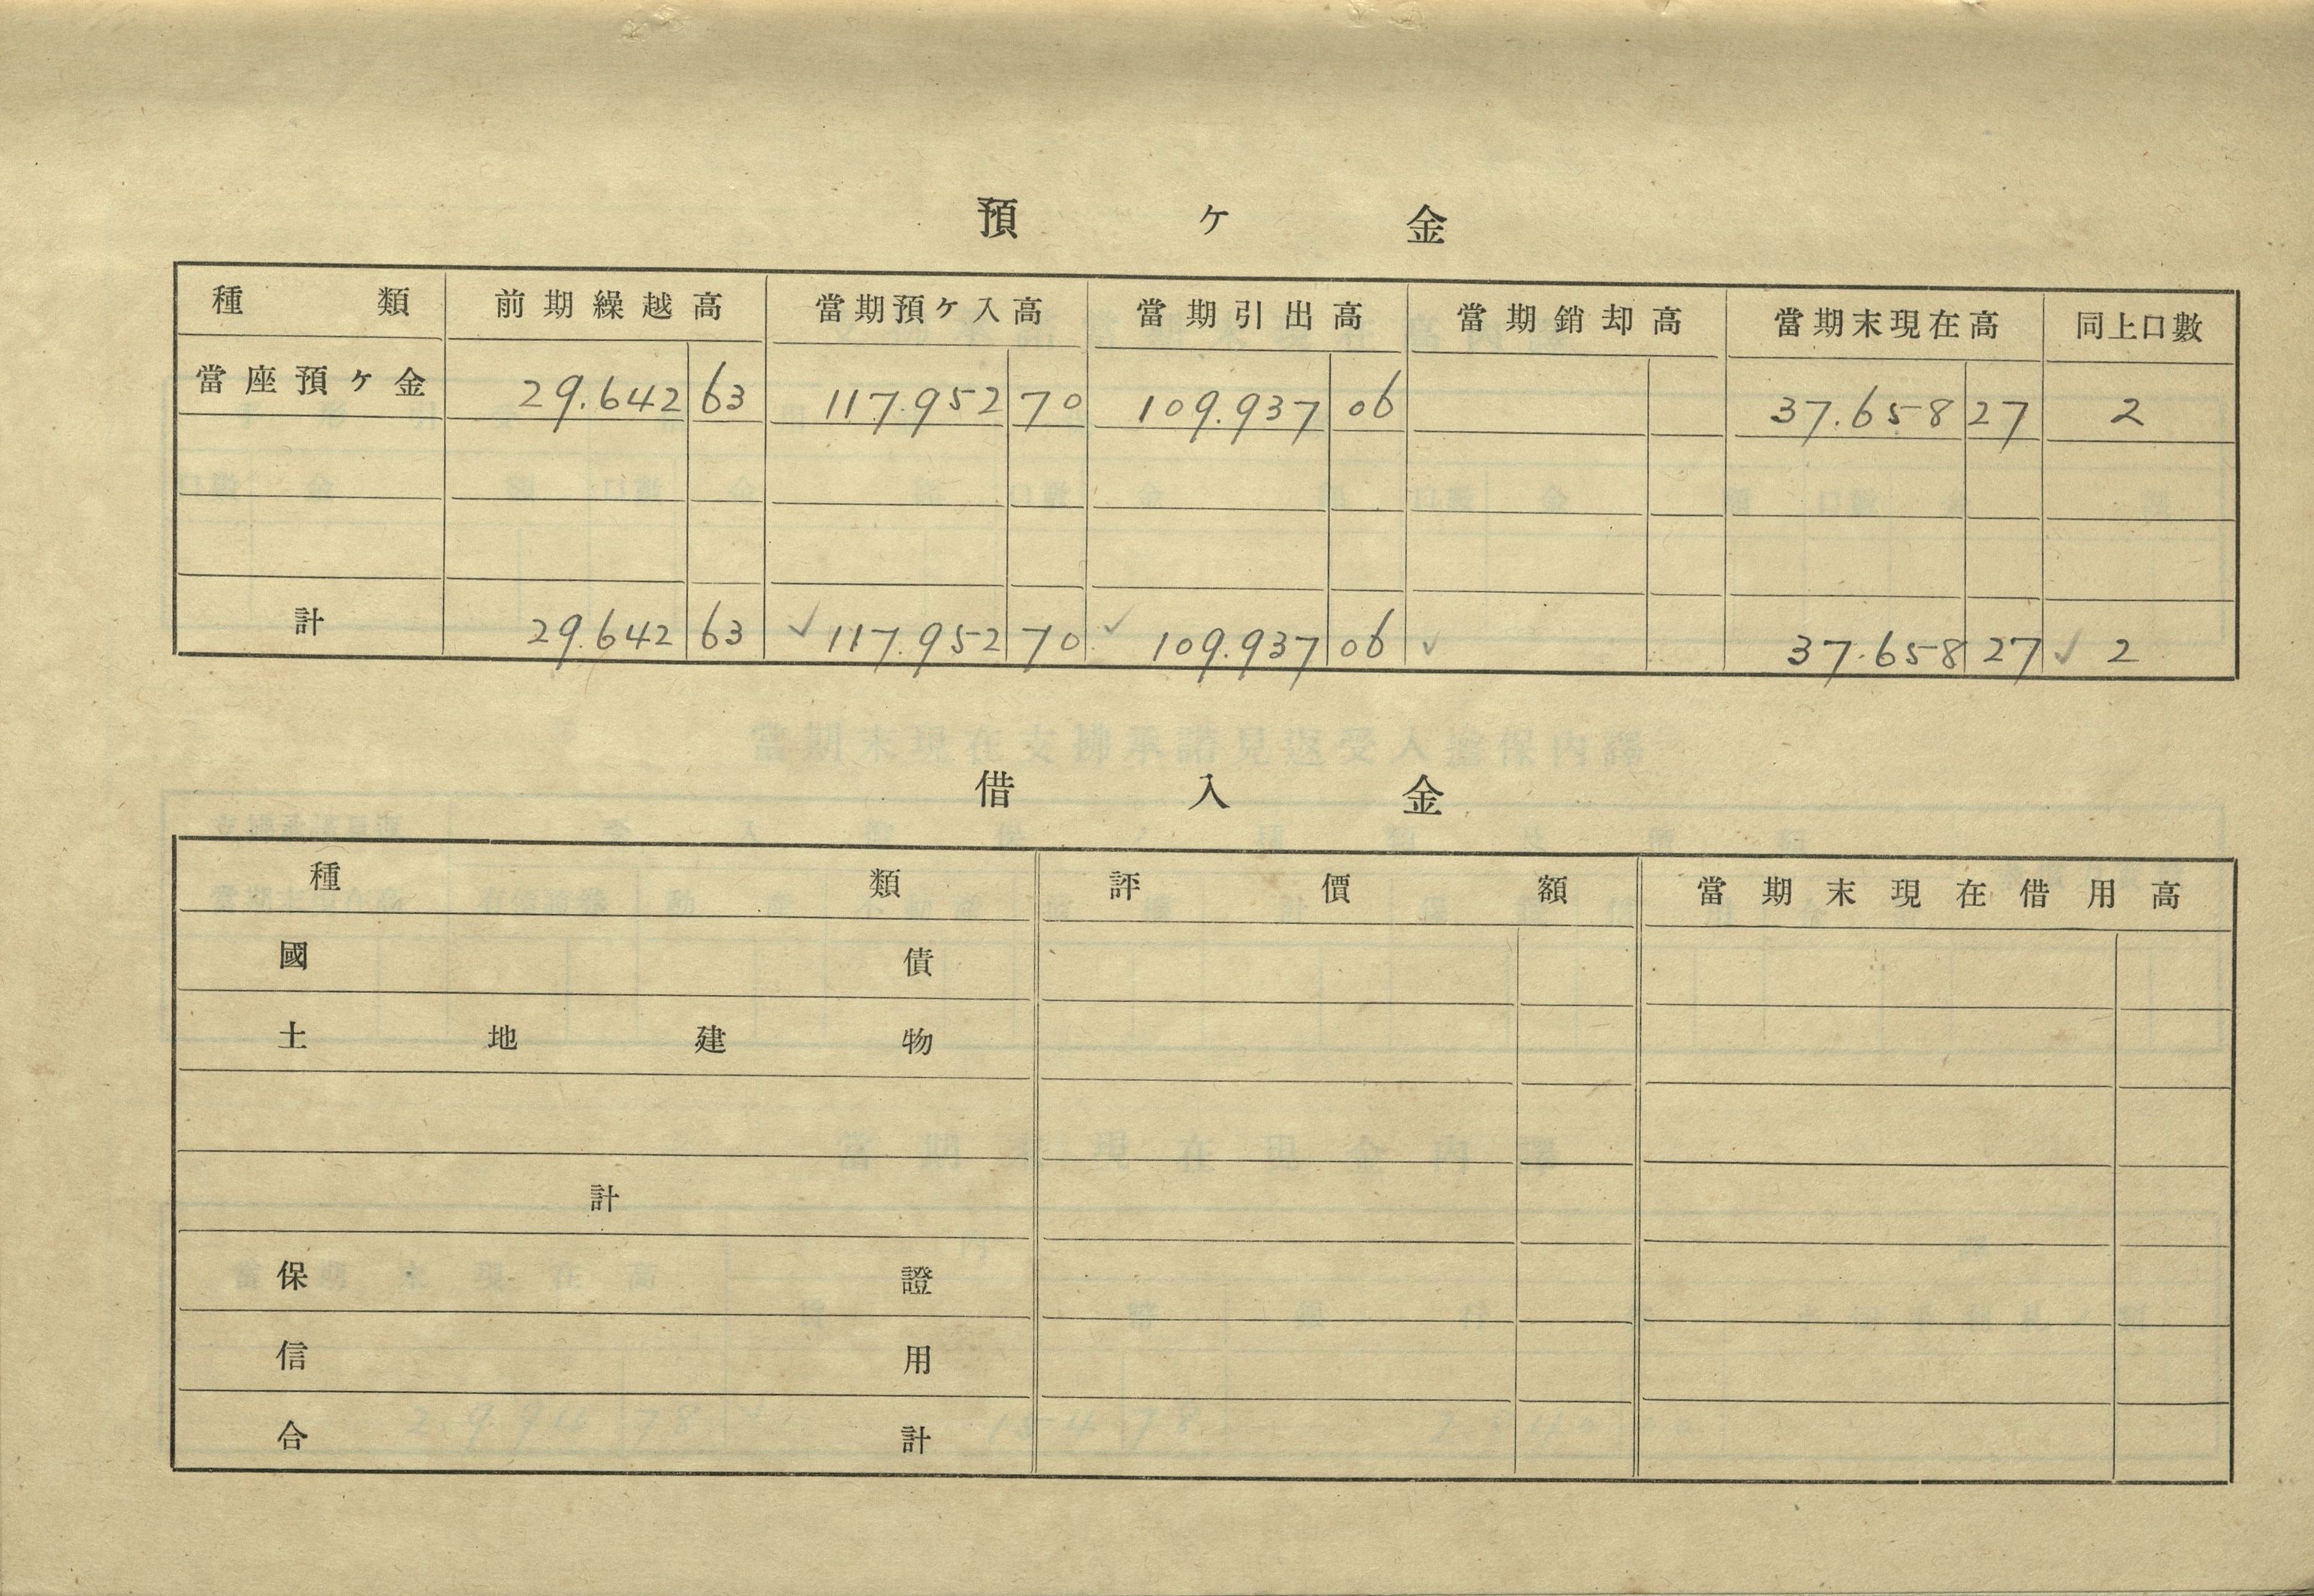 預ケ金
種類 前期繰越高 當期預ケ入高 當期引出高 當期銷却高 當期末現在高 同上口數
當座預ケ金 29.642 63 117.952 70 109.937 06 37.658 27 2
計 29.642 63 ✓ 117.952 70 ✓ 109.937 06 ✓ 37.658 27 ✓ 2
借入金
種類 評價額 當期末現在借用高
國債
土地建物
計
保證
信用
合計